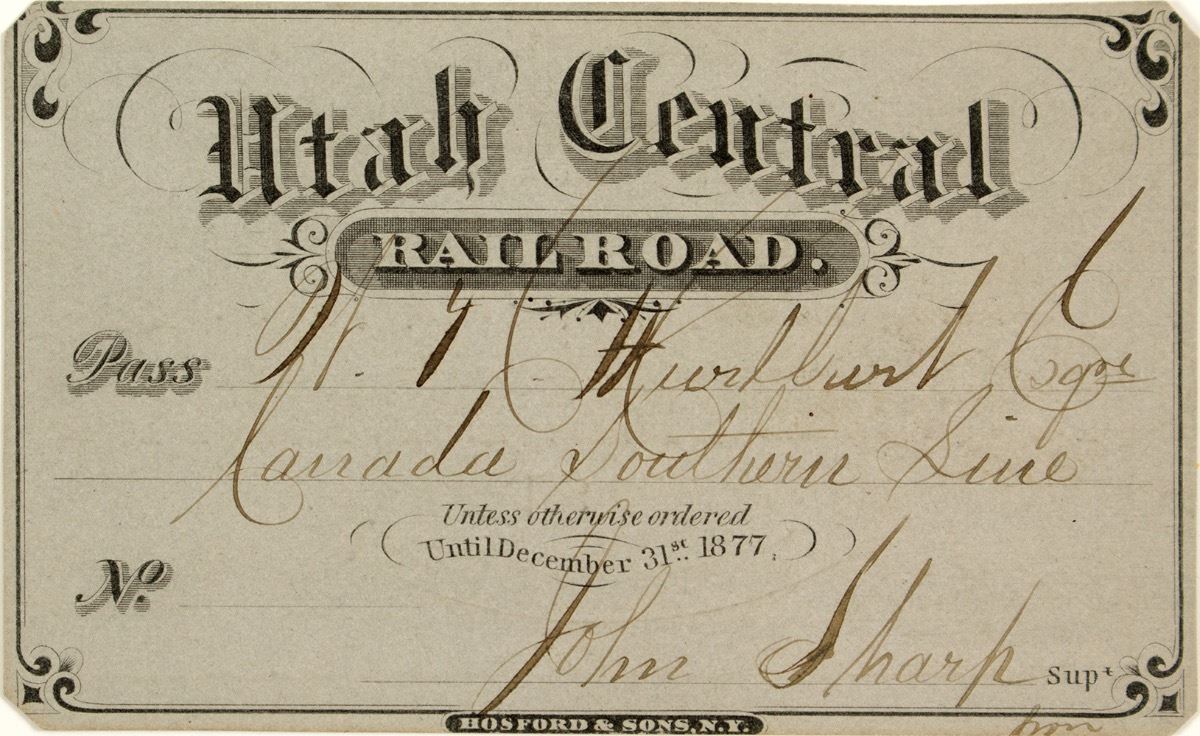 Utah Central
RAILROAD.
Pass W. K. Hurlburt Esqre
Canada Southern Line
Unless otherwise ordered
Until December 31st. 1877.
No.
John Sharp Supt
HOSFORD & SONS, N.Y.
from